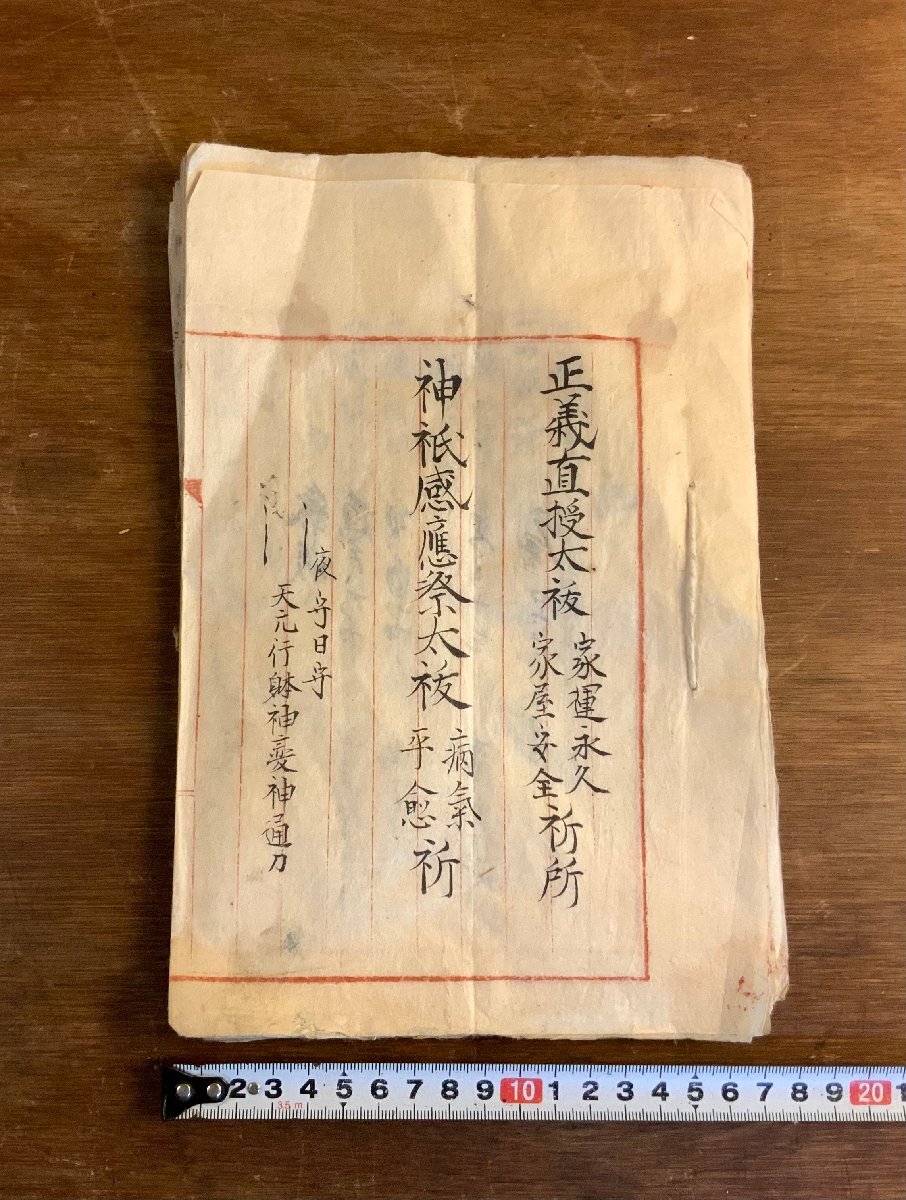 正義直授太祓
家運永久
家屋安全
祈所
神祇感應祭太祓
病氣
平愈
祈
夜守日守
天元行躰神變神通力
2 3 4 5 6 7 8 9 10 1 2 3 4 5 6 7 8 9 20 1
3.5m